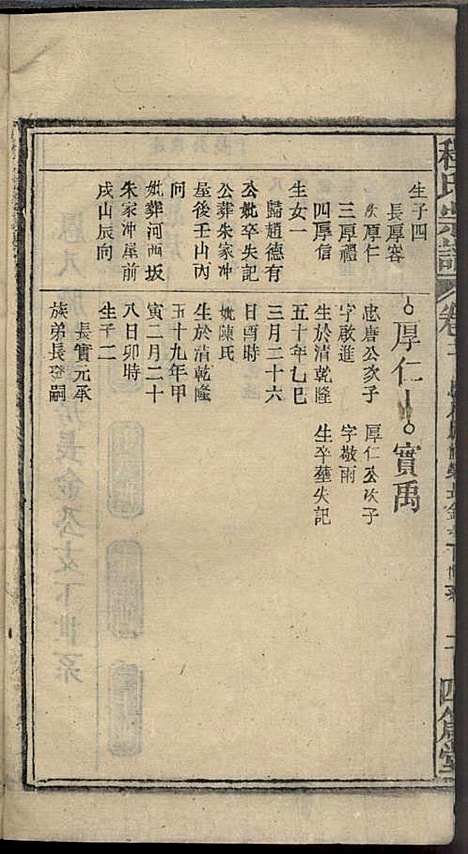 程氏宗譜
卷
四箴堂
生子四
長厚容
次厚仁
三厚禮
四厚信
生女一
歸趙德有
公妣卒失記
公葬朱家冲
屋後壬山丙
向
妣葬河西坂
朱家冲屋前
戌山辰向
厚仁
忠唐公次子
字啟進
生於清乾隆
五十年乙巳
三月二十六
日酉時
妣陳氏
生於清乾隆
五十九年甲
寅二月二十
八日卯時
生子二
長實元承
族弟長登嗣
實禹
厚仁公次子
字敬雨
生卒塟失記